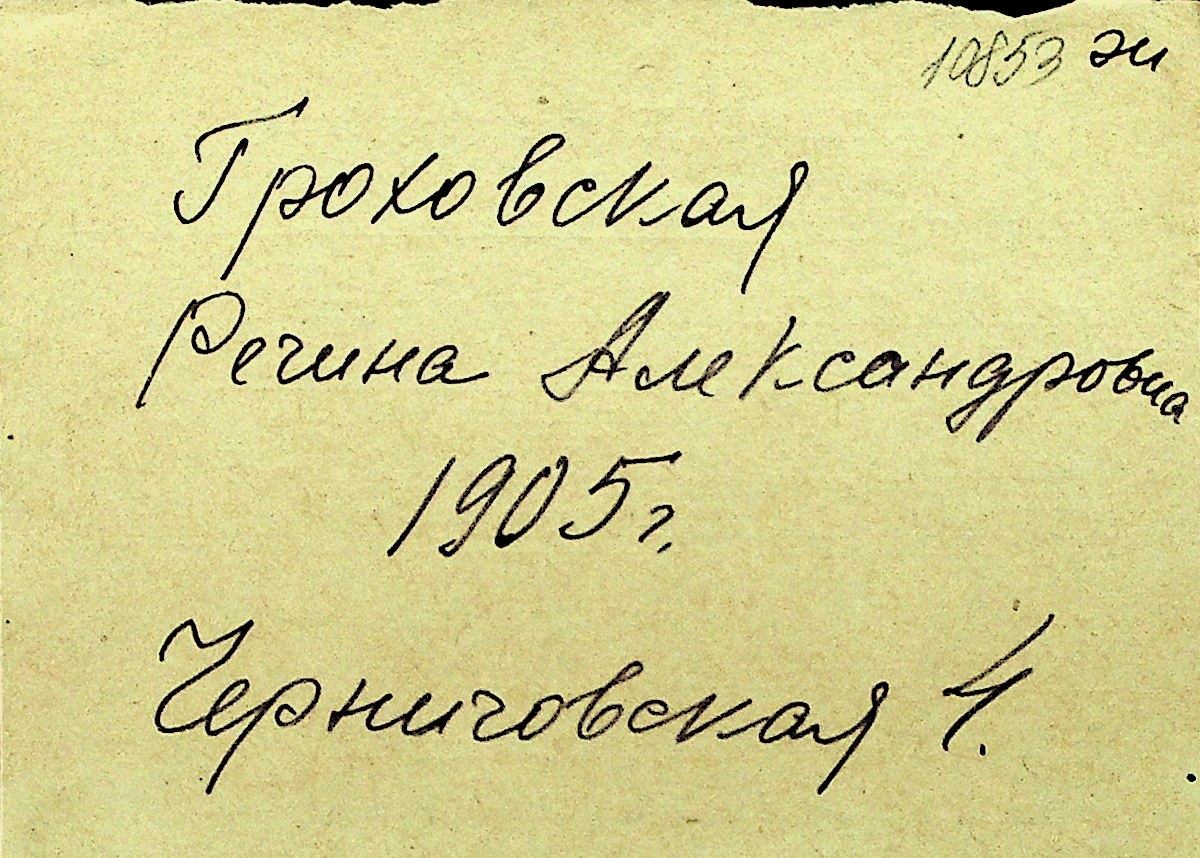 10853 эи
Гроховская
Регина Александровна
1905 г.
Черниговская 4.